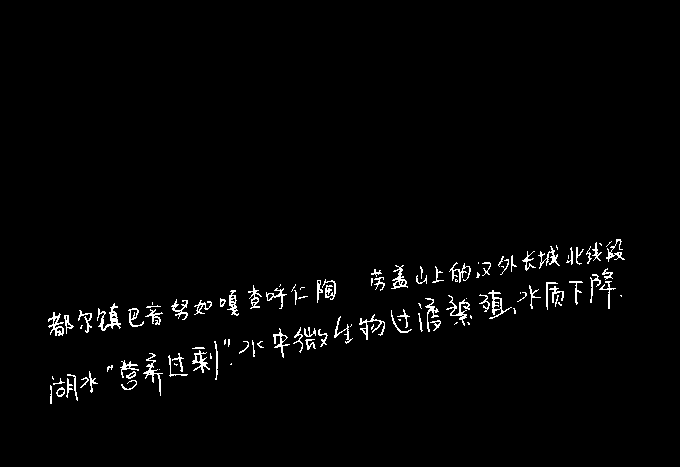 都尔镇巴音努如嘎查呼仁陶 劳盖山上的汉外长城北线段
湖水"营养过剩".水中微生物过度繁殖、水质下降.